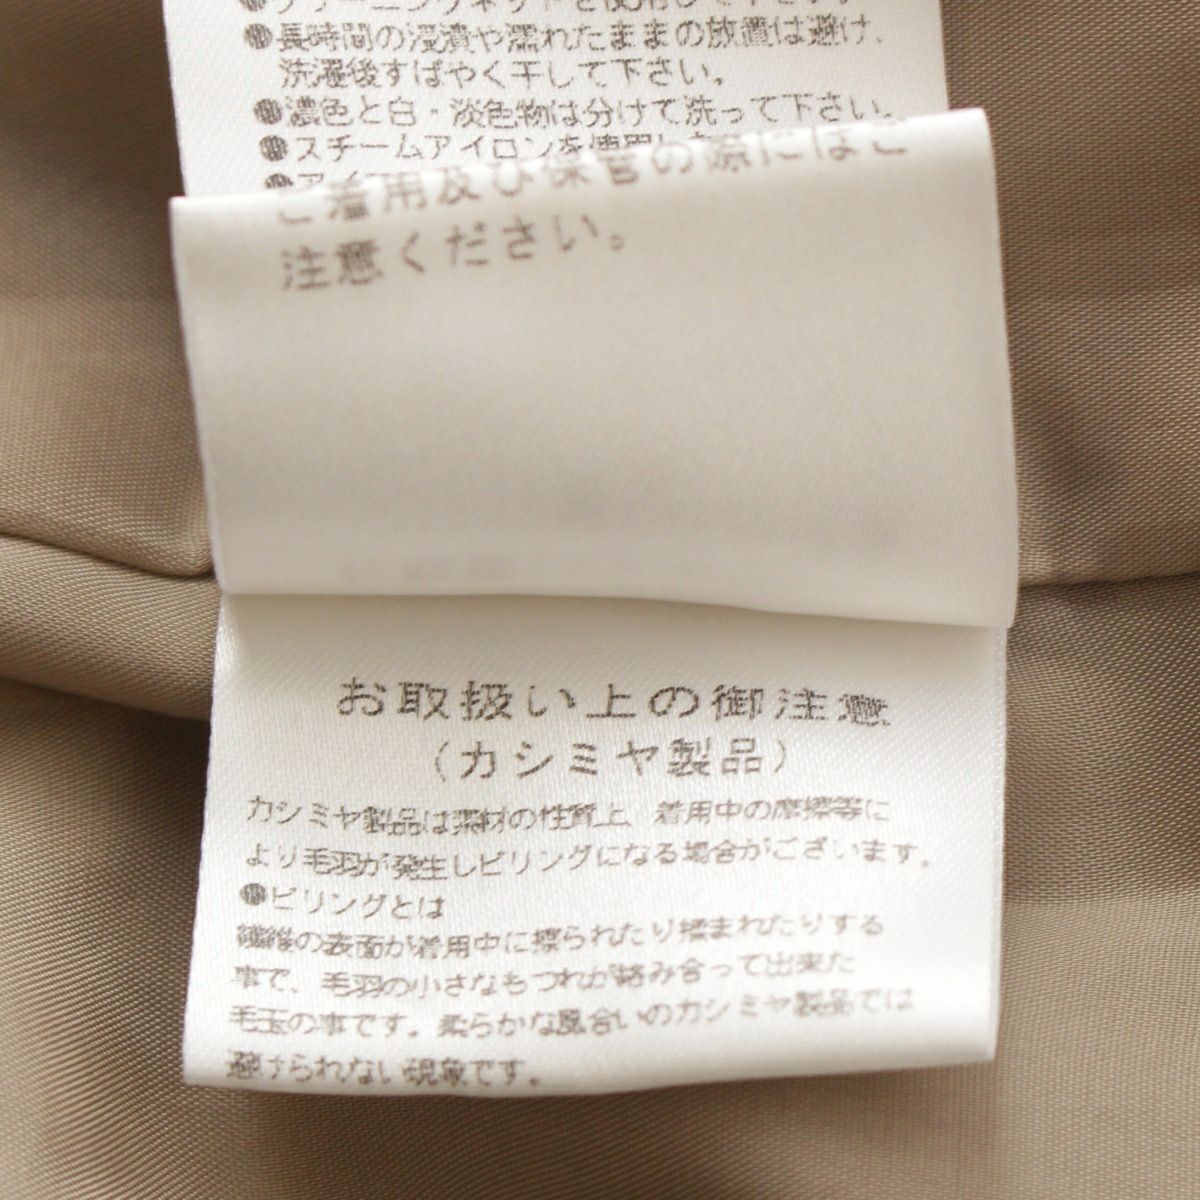 クリーニングネットを使用して下さい。
●長時間の浸漬や濡れたままの放置は避け、
洗濯後すばやく干して下さい。
●濃色と白・淡色物は分けて洗って下さい。
●スチームアイロンを使用し
ご着用及び保管の際にはご
注意ください。
お取扱い上の御注意
(カシミヤ製品)
カシミヤ製品は素材の性質上、着用中の摩擦等に
より毛羽が発生しピリングになる場合がございます。
●ピリングとは
繊維の表面が着用中に擦られたり揉まれたりする
事で、毛羽の小さなもつれが絡み合って出来た
毛玉の事です。柔らかな風合いのカシミヤ製品では
避けられない現象です。